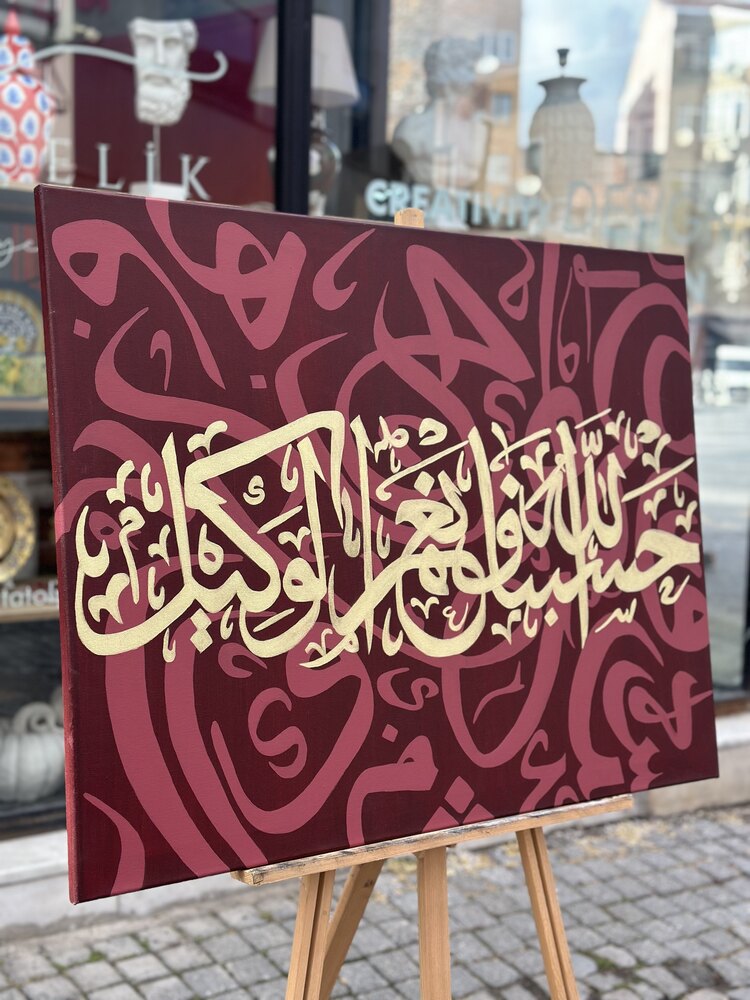 ELİK
CREATIVITY
حسبنا الله ونعم الوكيل